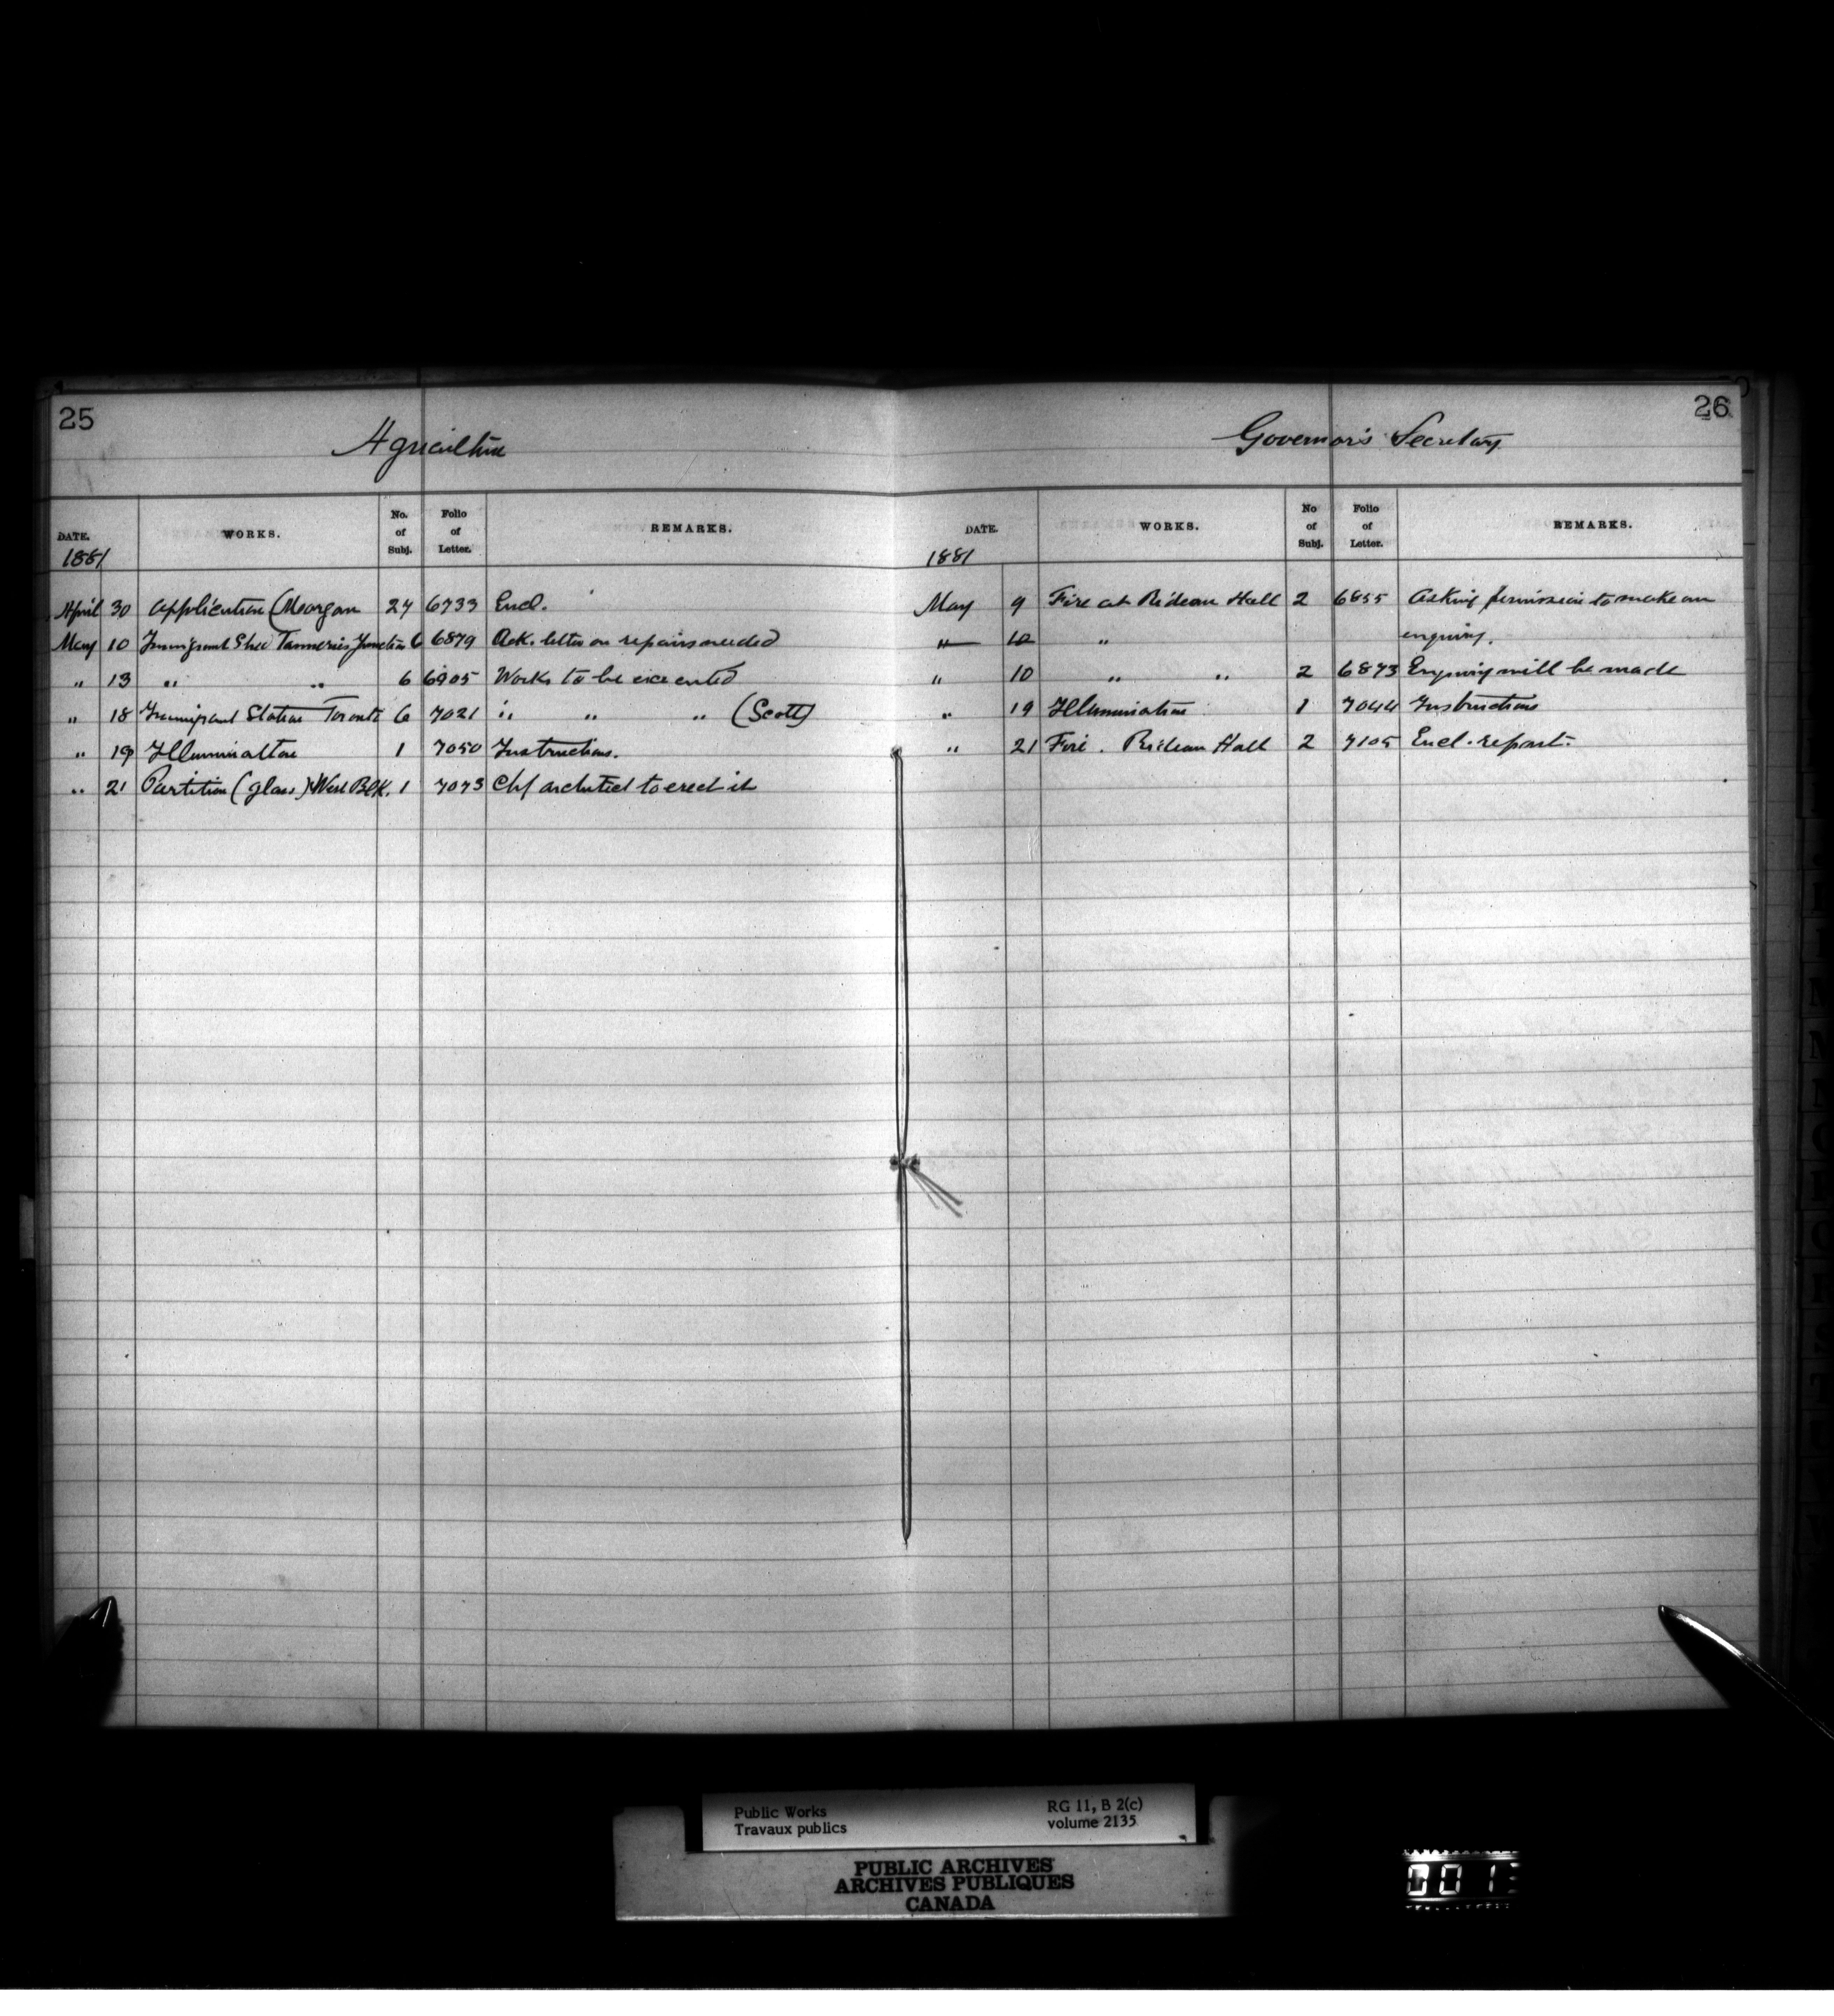 25
Agriculture
DATE. WORKS. No. of Subj. Folio of Letter. REMARKS.
1881
April 30 Application (Morgan 24 6733 Encl.
May 10 Immigrant Shed Tanneries Junction 6 6879 Ack. letter on repairs needed
" 13 " " 6 6905 Works to be executed
" 18 Immigrant Station Toronto 6 7021 " " " (Scott)
" 19 Illumination 1 7050 Instructions.
" 21 Partition (glass) West Blk. 1 7073 Chf architect to erect it
26
Governor's Secretary
DATE. WORKS. No of Subj. Folio of Letter. REMARKS.
1881
May 9 Fire at Rideau Hall 2 6855 Asking permission to make an
" 10 " enquiry.
" 10 " " 2 6873 Enquiry will be made
" 19 Illumination 1 7044 Instructions
" 21 Fire. Rideau Hall 2 7105 Encl. report.
Public Works
Travaux publics
RG 11, B 2(c)
volume 2135
PUBLIC ARCHIVES
ARCHIVES PUBLIQUES
CANADA
001